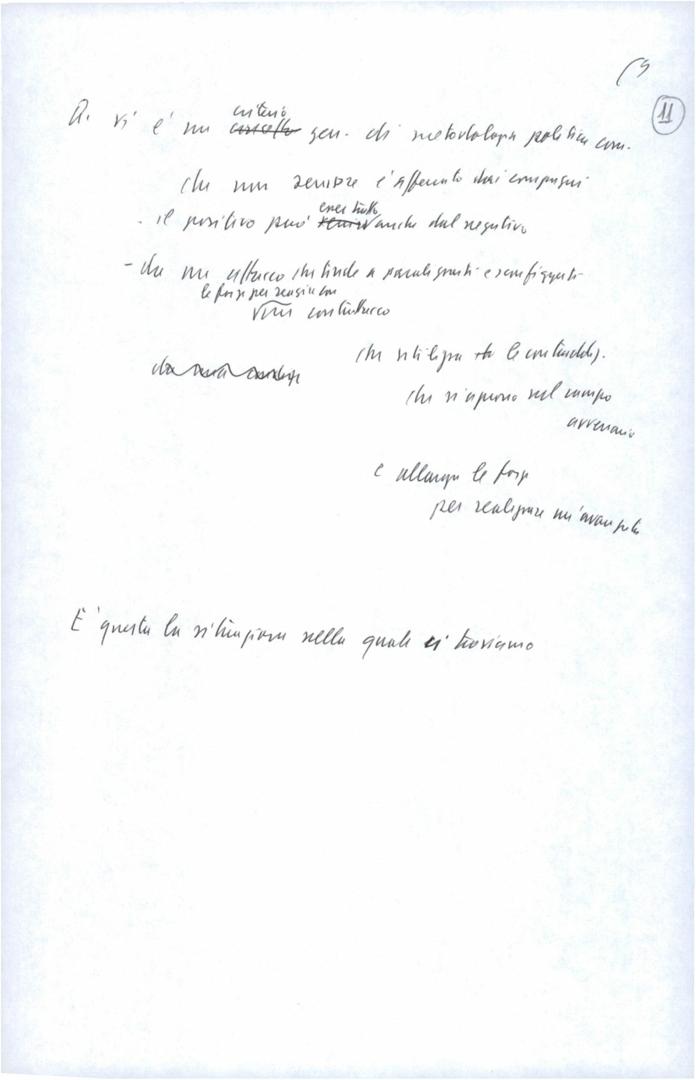 11
vi è un criterio gen. di metodologia politica com.
che non sempre è afferrato dai compagni
- il positivo può esser tratto anche dal negativo
- da un attacco che tende a paralizzarti e sconfiggerti
le forze per
contrattacco
che utilizza le contraddiz.
che si aprono nel campo
avversario
e allarga le forze
per realizzare un'avanzata
E' questa la situazione nella quale ci troviamo